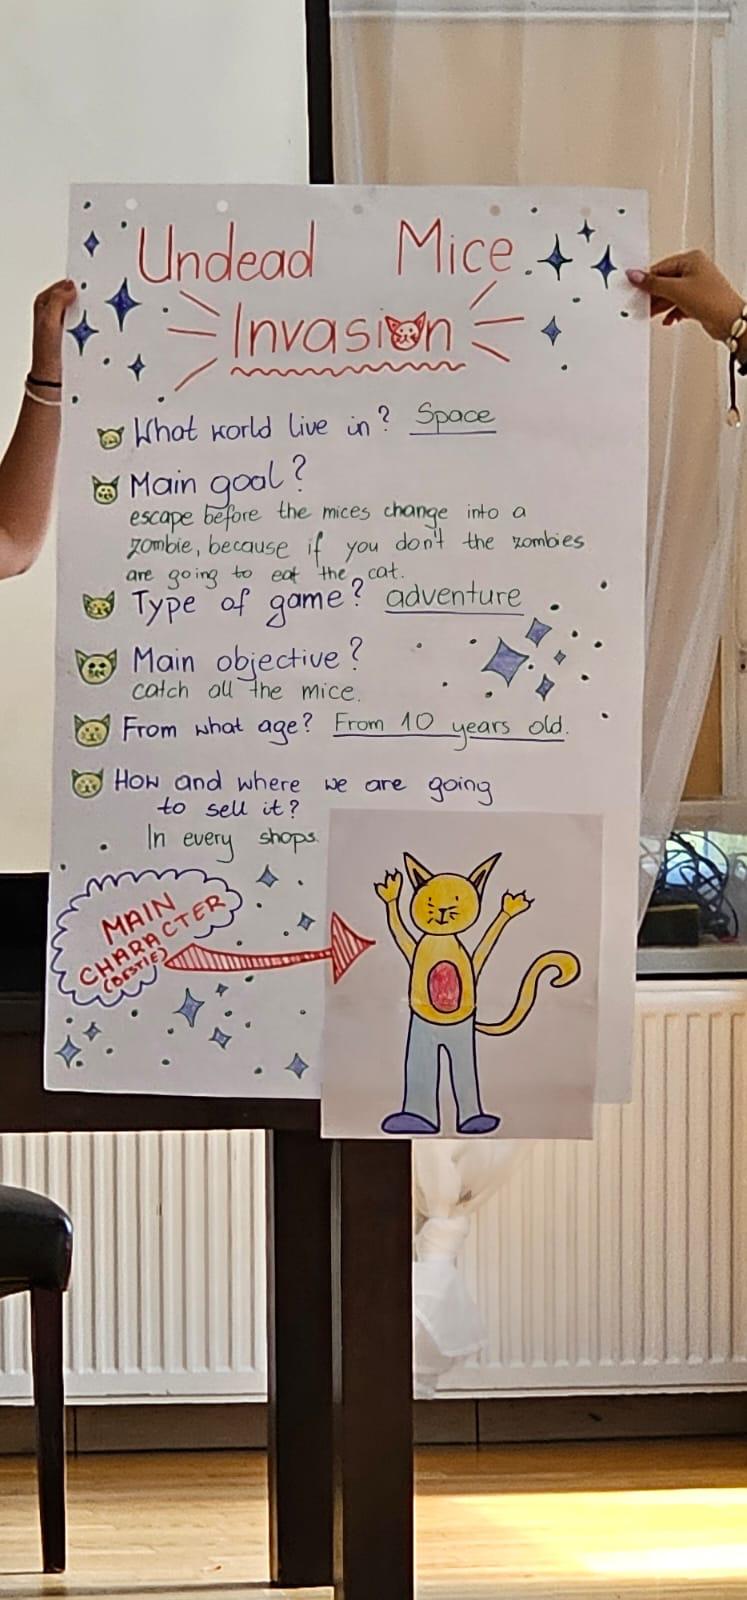 Undead Mice
Invasion
What world live in? Space
Main goal?
escape before the mices change into a
zombie, because if you don't the zombies
are going to eat the cat.
Type of game? adventure
Main objective?
catch all the mice.
From what age? From 10 years old.
How and where we are going
to sell it?
In every shops.
MAIN
CHARACTER
(BESTIE)